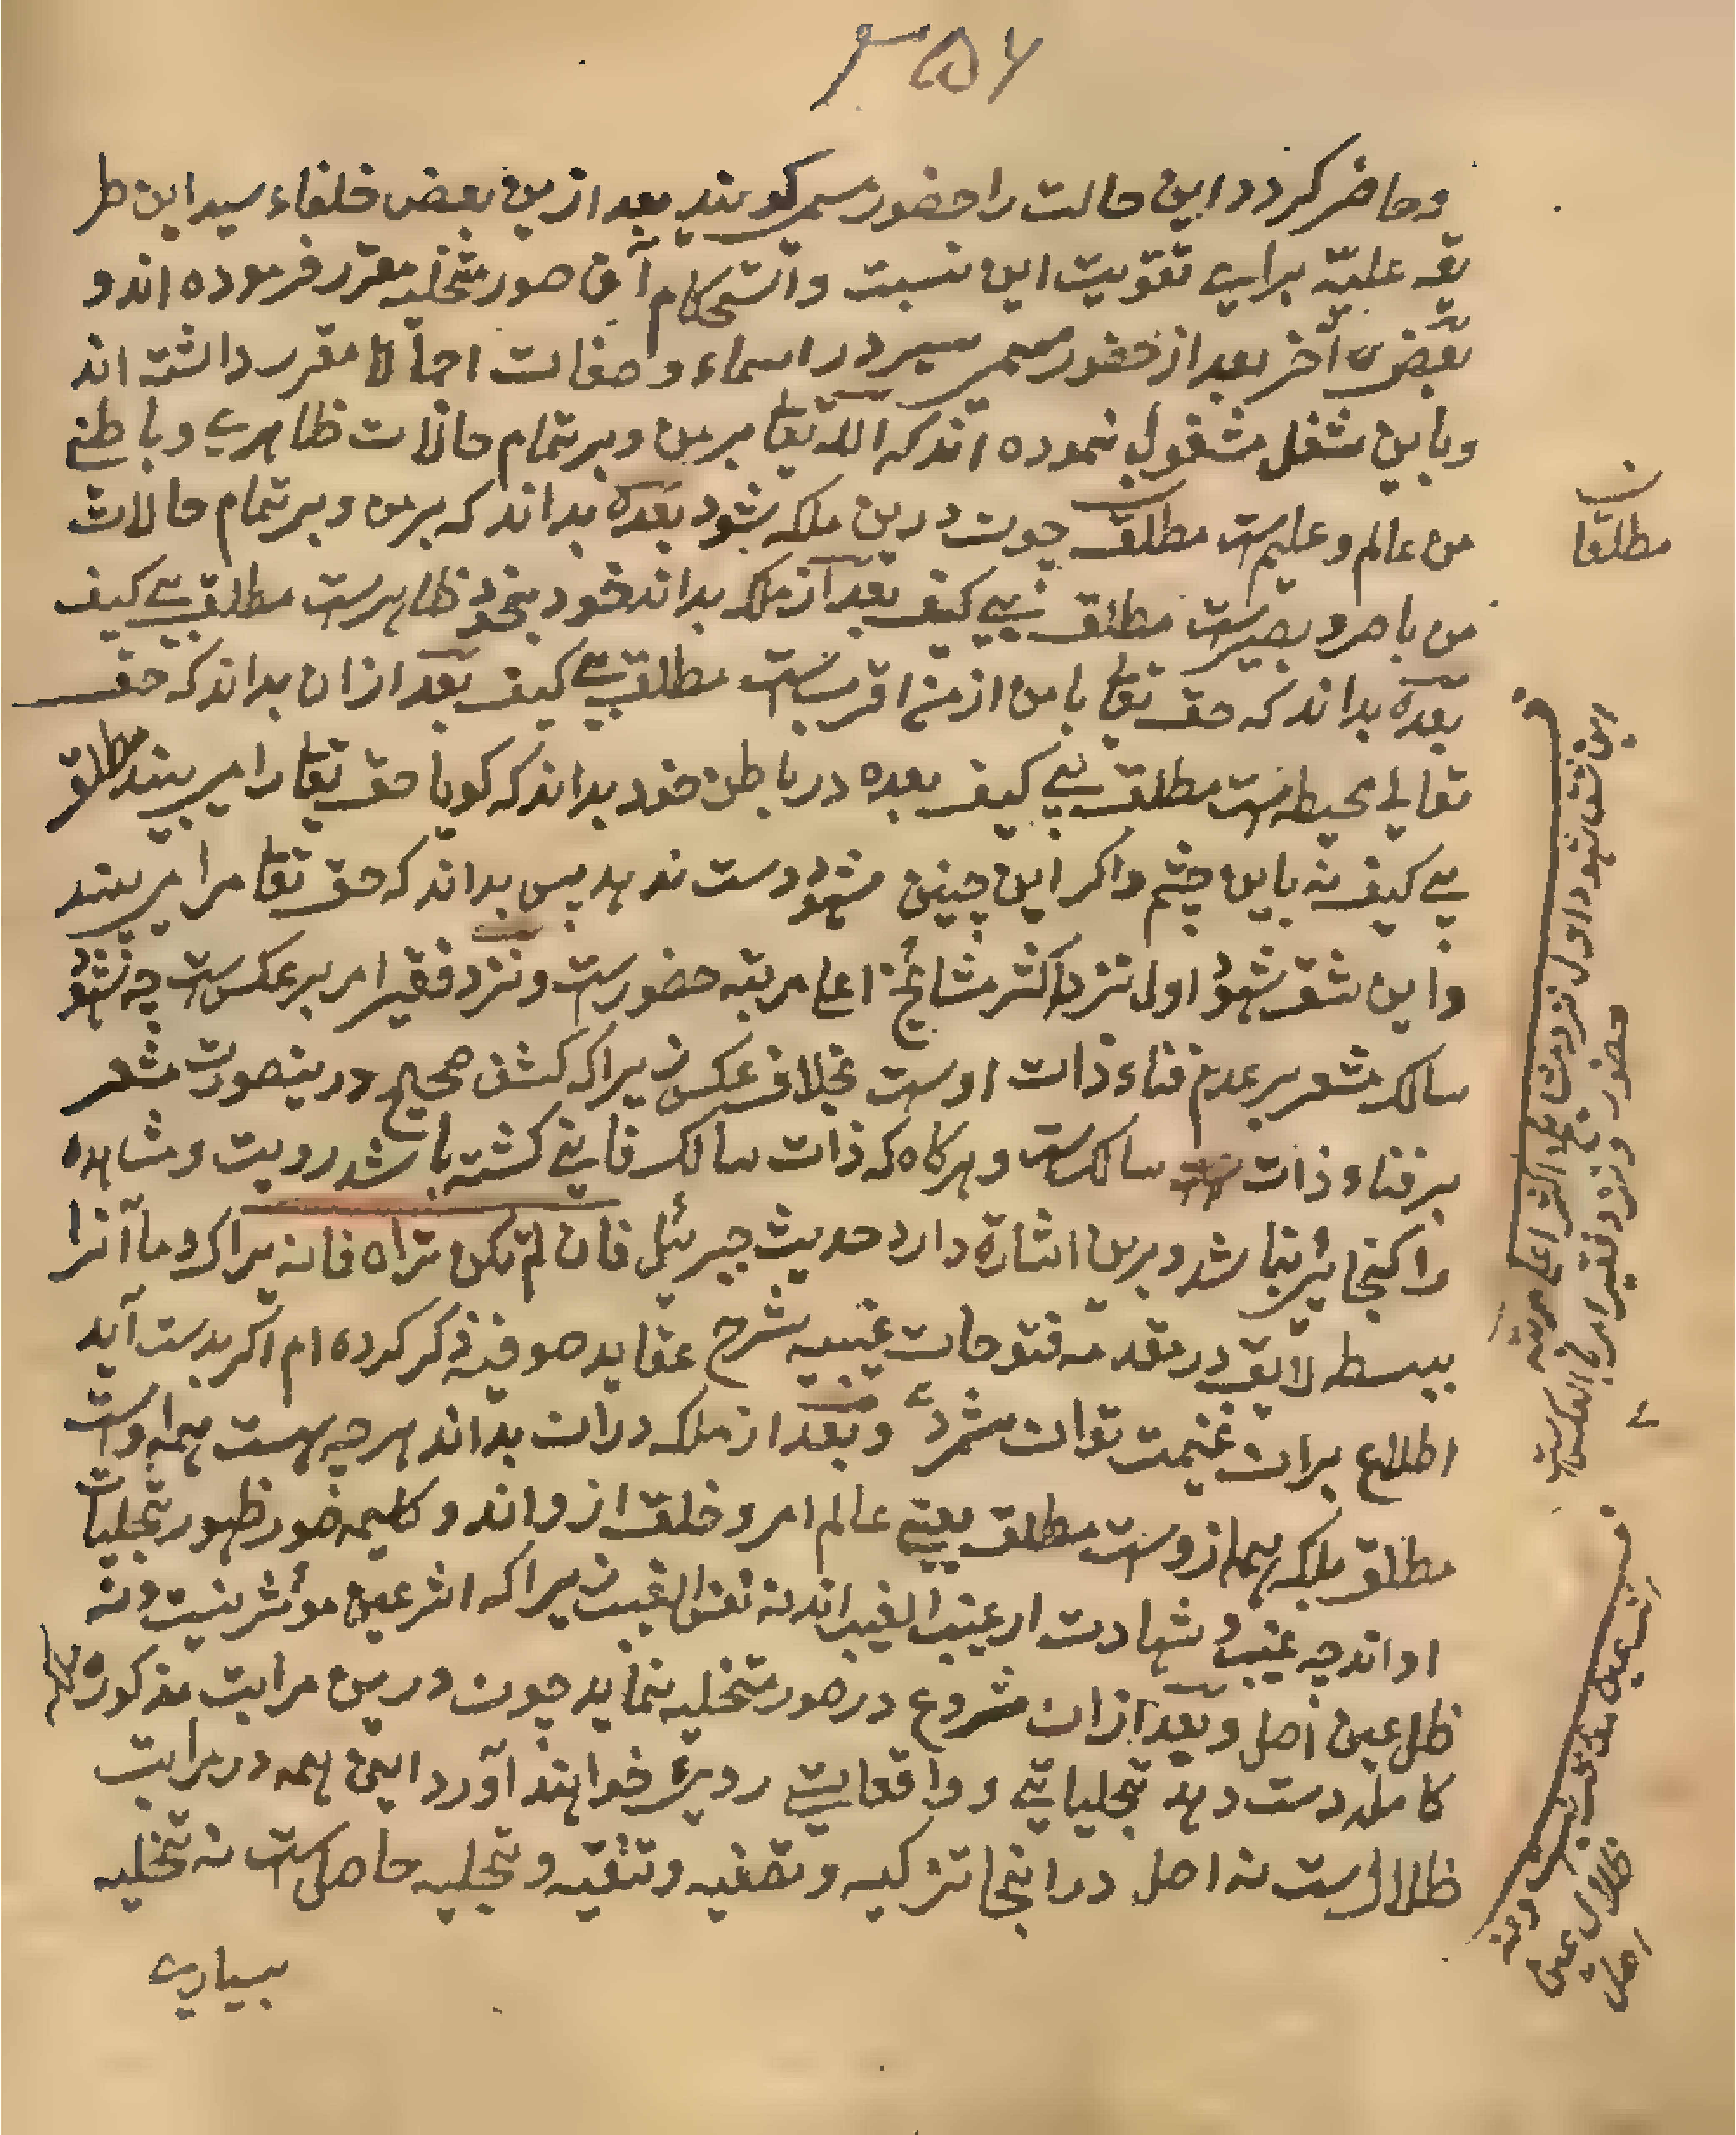 ۳۵۶
وحاضر كردد اين حالت را حضور مے كويند بعد ازين بعض خلفاء سيد اين طر
يقه عليّه براے تقويت اين نسبت واستحكام آن صور متخليه مقرر فرموده اند و
بعضى آخر بعد از حضور مے سير در اسماء وصفات اجمالا مقرر داشته اند
وباين شغل مشغول نموده اند كه الله تعا بر من وبر تمام حالات ظاهرے وباطنے
من عالم وعليم ست مطلق چون درين ملكه شود بعده بداند كه بر من وبر تمام حالات
من باصر وبصيرست مطلق بے كيف بعد از ملكه بداند خود بخود ظاهرست مطلق بے كيف
بعده بداند كه حق تعا با من از من اقربست مطلق بے كيف بعد ازان بداند كه حق
تعالے محيط ست مطلق بے كيف بعده در باطن خود بداند كه كويا حق تعا را مے بيند مطلق
بے كيف نه باين چشم واكر اين چنين شهود دست ندهد پس بداند كه حق تعا مرا مے بيند
واين شق شهود اول نزد اكثر مشائخ اعلى مرتبه حضورست ونزد فقير امر بر عكس ست چه شهود
سالك مشعر بر عدم فناء ذات اوست بخلاف عكس زيراكه كشف صحيح درينصورت مشعر
بر فناء ذات سالكست وهركاه كه ذات سالك فانے كشته باشد رويت ومشاهده
را كنجائش نباشد وبرين اشارة دارد حديث جبرئيل فان لم تكن تراه فانه يراك وما آنرا
ببسط لايق در مقدمه فتوحات غيبيه شرح عقايد صوفيه ذكر كرده ام اكر بدست آيد
اطلاع بران غنيمت توان شمرد وبعد از ملكه دران بداند هرچه هست همه اوست
مطلق بلكه همه ازوست مطلق يعنے عالم امر وخلق ازو اند و ظهور تجليات
او اند چه غيب وشهادت از غيب الغيب اند نه نفس الغيب زيراكه اثر عين موثر نيست ونه
ظل عين اصل وبعد ازان شروع در صور متخليه نمايد چون درين مراتب مذكوره ملكه
كامله دست دهد تجلياتے وواقعاتے روبرو خواهند آورد اين همه در مراتب
ظلال ست نه اصل در اينجا تزكيه وتصفيه وتنقيه وتجليه حاصل ست نه تخليه
بسيارے
ن
مطلقا
اين شق شهود اول نزد مشايخ اكثر اعلى مرتبه
حضور ونزد فقير امر بالعكس ست
اثر عين موثر نيست ونه
ظلال عين
اصل